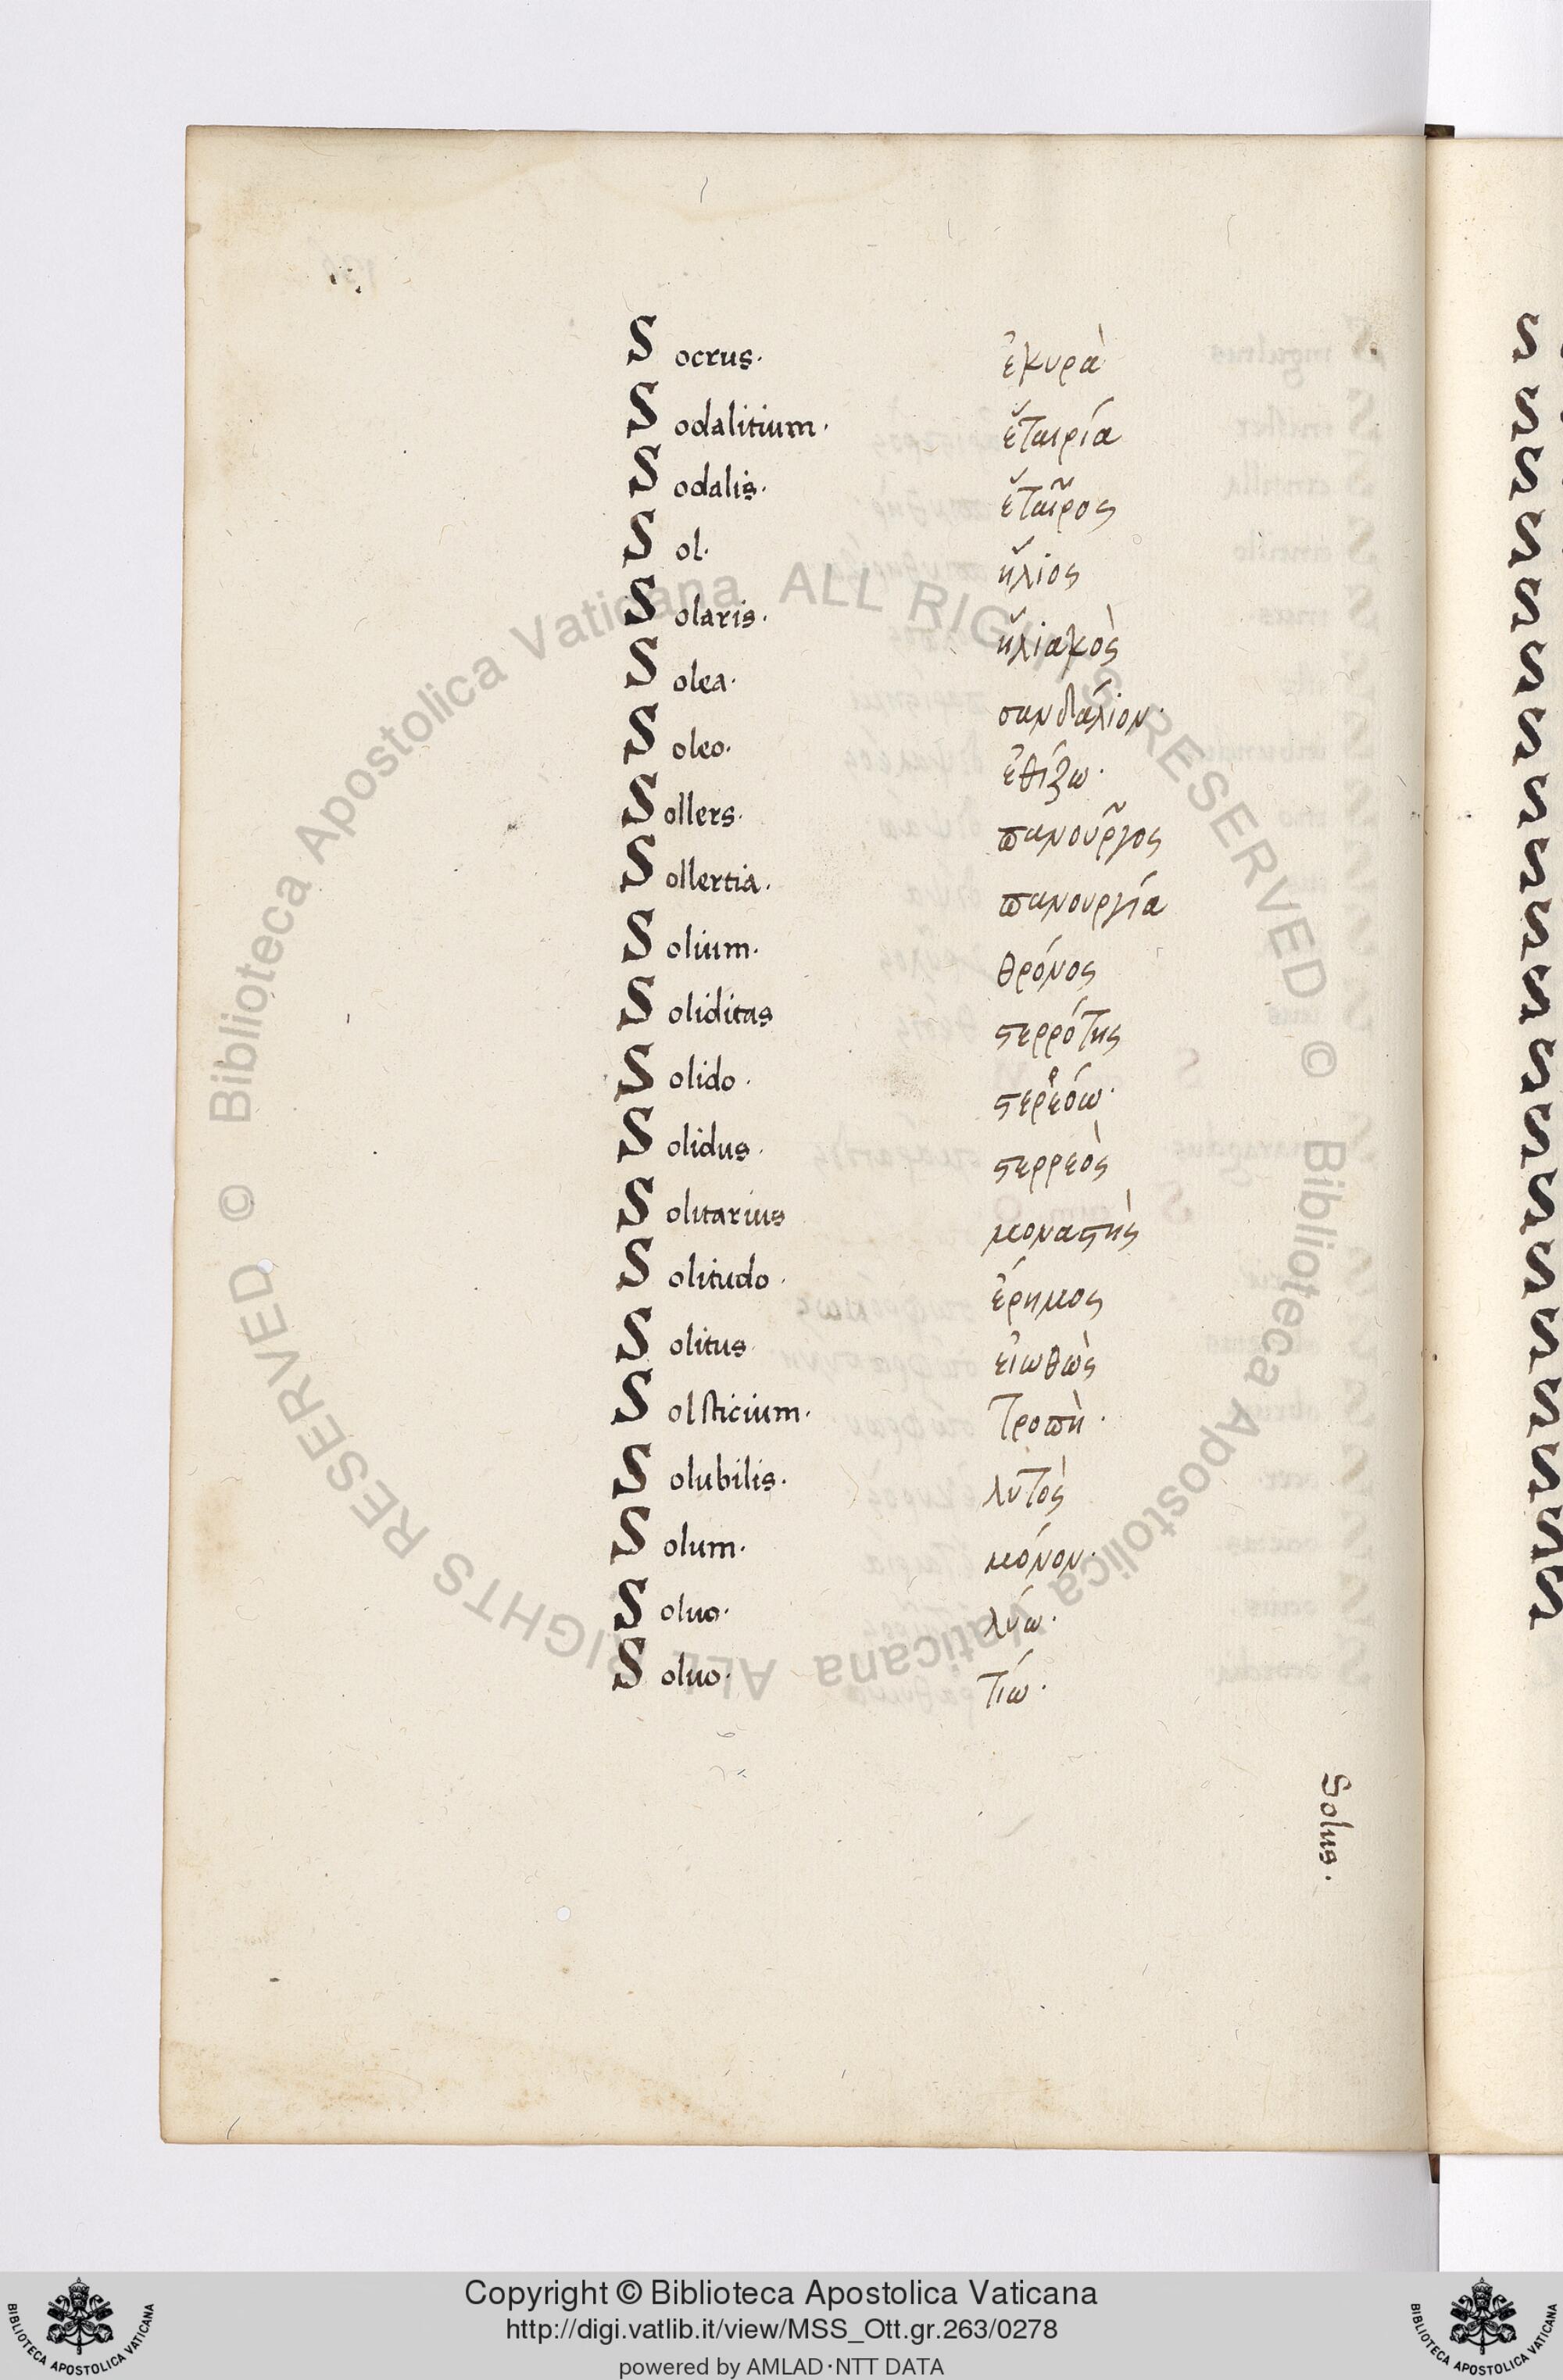 Socrus. ἑκυρὰ
Sodalitium. ἑταιρία
Sodalis. ἑταῖρος
Sol. ἥλιος
Solaris. ἡλιακὸς
Solea. σανδάλιον.
Soleo. ἐθίζω.
Sollers. πανοῦργος
Sollertia. πανουργία
Solium. θρόνος
Soliditas στερρότης
Solido. στερεόω.
Solidus. στερρεὸς
Solitarius μοναστὴς
Solitudo. ἔρημος
Solitus εἰωθὼς
Solsticium. τροπὴ.
Solubilis. λυτὸς
Solum. μόνον.
Soluo. λύω.
Soluo. τίω.
Solus.
© Biblioteca Apostolica Vaticana ALL RIGHTS RESERVED © Biblioteca Apostolica Vaticana ALL RIGHTS RESERVED
Copyright © Biblioteca Apostolica Vaticana
http://digi.vatlib.it/view/MSS_Ott.gr.263/0278
powered by AMLAD·NTT DATA
BIBLIOTECA APOSTOLICA VATICANA
BIBLIOTECA APOSTOLICA VATICANA